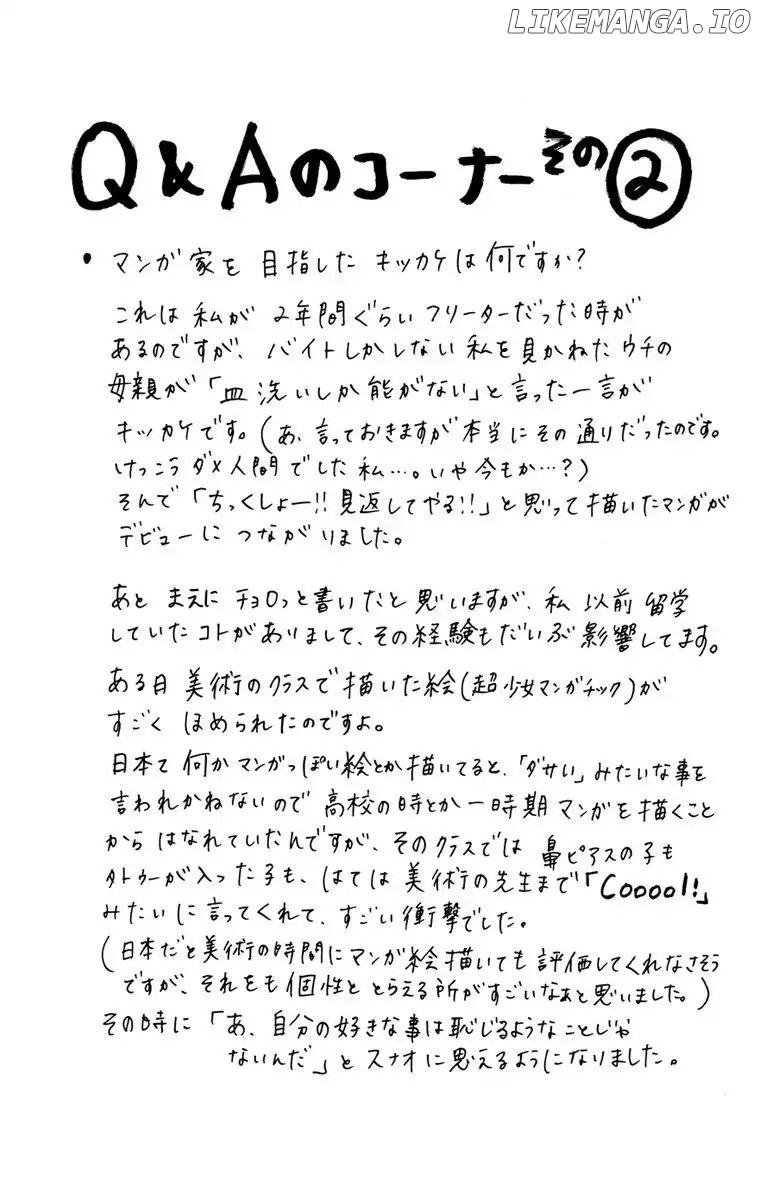 LIKEMANGA.IO
Q&Aのコーナーその②
・マンガ家を目指したキッカケは何ですか?
これは私が2年間ぐらいフリーターだった時が
あるのですが、バイトしかしない私を見かねたウチの
母親が「皿洗いしか能がない」と言った一言が
キッカケです。(あ、言っておきますが本当にその通りだったのです。
けっこうダメ人間でした私…。いや今もか…?)
そんで「ちっくしょー!!見返してやる!!」と思って描いたマンガが
デビューにつながりました。
あとまえにチョロっと書いたと思いますが、私以前留学
していたコトがありまして、その経験もだいぶ影響してます。
ある日美術のクラスで描いた絵(超少女マンガチック)が
すごくほめられたのですよ。
日本て何かマンガっぽい絵とか描いてると、「ダサい」みたいな事を
言われかねないので高校の時とか一時期マンガを描くこと
からはなれていたんですが、そのクラスでは鼻ピアスの子も
タトゥーが入った子も、はては美術の先生まで「Cooool!」
みたいに言ってくれて、すごい衝撃でした。
(日本だと美術の時間にマンガ絵描いても評価してくれなさそう
ですが、それをも個性ととらえる所がすごいなぁと思いました。)
その時に「あ、自分の好きな事は恥じるようなことじゃ
ないんだ」とスナオに思えるようになりました。